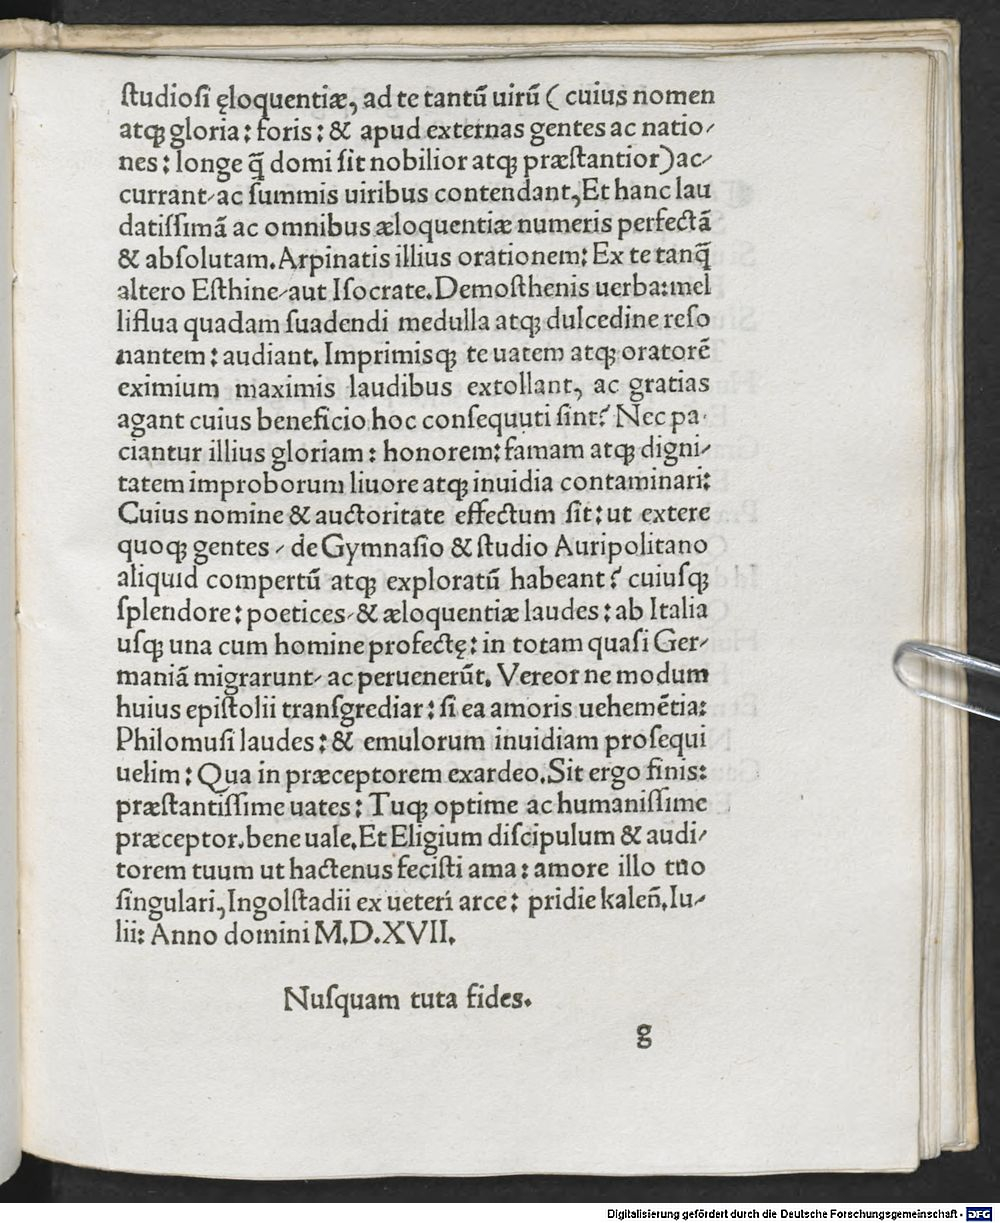 ſtudioſi ęloquentiæ, ad te tantū uirū ( cuius nomen
atꝗ gloria: foris: & apud externas gentes ac natio⸗
nes: longe q̄ domi ſit nobilior atꝗ præſtantior) ac⸗
currant⸝ ac ſummis uiribus contendant, Et hanc lau
datiſſimā ac omnibus æloquentiæ numeris perfectā
& abſolutam. Arpinatis illius orationem: Ex te tanq̄
altero Eſthine⸝ aut Iſocrate. Demoſthenis uerba: mel
liflua quadam ſuadendi medulla atꝗ dulcedine reſo
nantem: audiant. Imprimisꝗ te uatem atꝗ oratorē
eximium maximis laudibus extollant, ac gratias
agant cuius beneficio hoc conſequuti ſint? Nec pa⸗
ciantur illius gloriam: honorem: famam atꝗ digni⸗
tatem improborum liuore atꝗ inuidia contaminari:
Cuius nomine & auctoritate effectum ſit: ut extere
quoꝗ gentes⸝ de Gymnaſio & ſtudio Auripolitano
aliquid compertū atꝗ exploratū habeant? cuiuſꝗ
ſplendore: poetices⸝ & æloquentiæ laudes: ab Italia
uſꝗ una cum homine profectę: in totam quaſi Ger⸗
maniā migrarunt⸝ ac peruenerūt. Vereor ne modum
huius epiſtolii tranſgrediar: ſi ea amoris uehemētia:
Philomuſi laudes: & emulorum inuidiam proſequi
uelim: Qua in præceptorem exardeo. Sit ergo finis:
præſtantiſſime uates: Tuꝗ optime ac humaniſſime
præceptor. bene uale. Et Eligium diſcipulum & audi⸗
torem tuum ut hactenus feciſti ama: amore illo tuo
ſingulari, Ingolſtadii ex ueteri arce: pridie kaleñ. Iu⸗
lii: Anno domini M.D.XVII.
Nuſquam tuta fides.
g
Digitalisierung gefördert durch die Deutsche Forschungsgemeinschaft - DFG